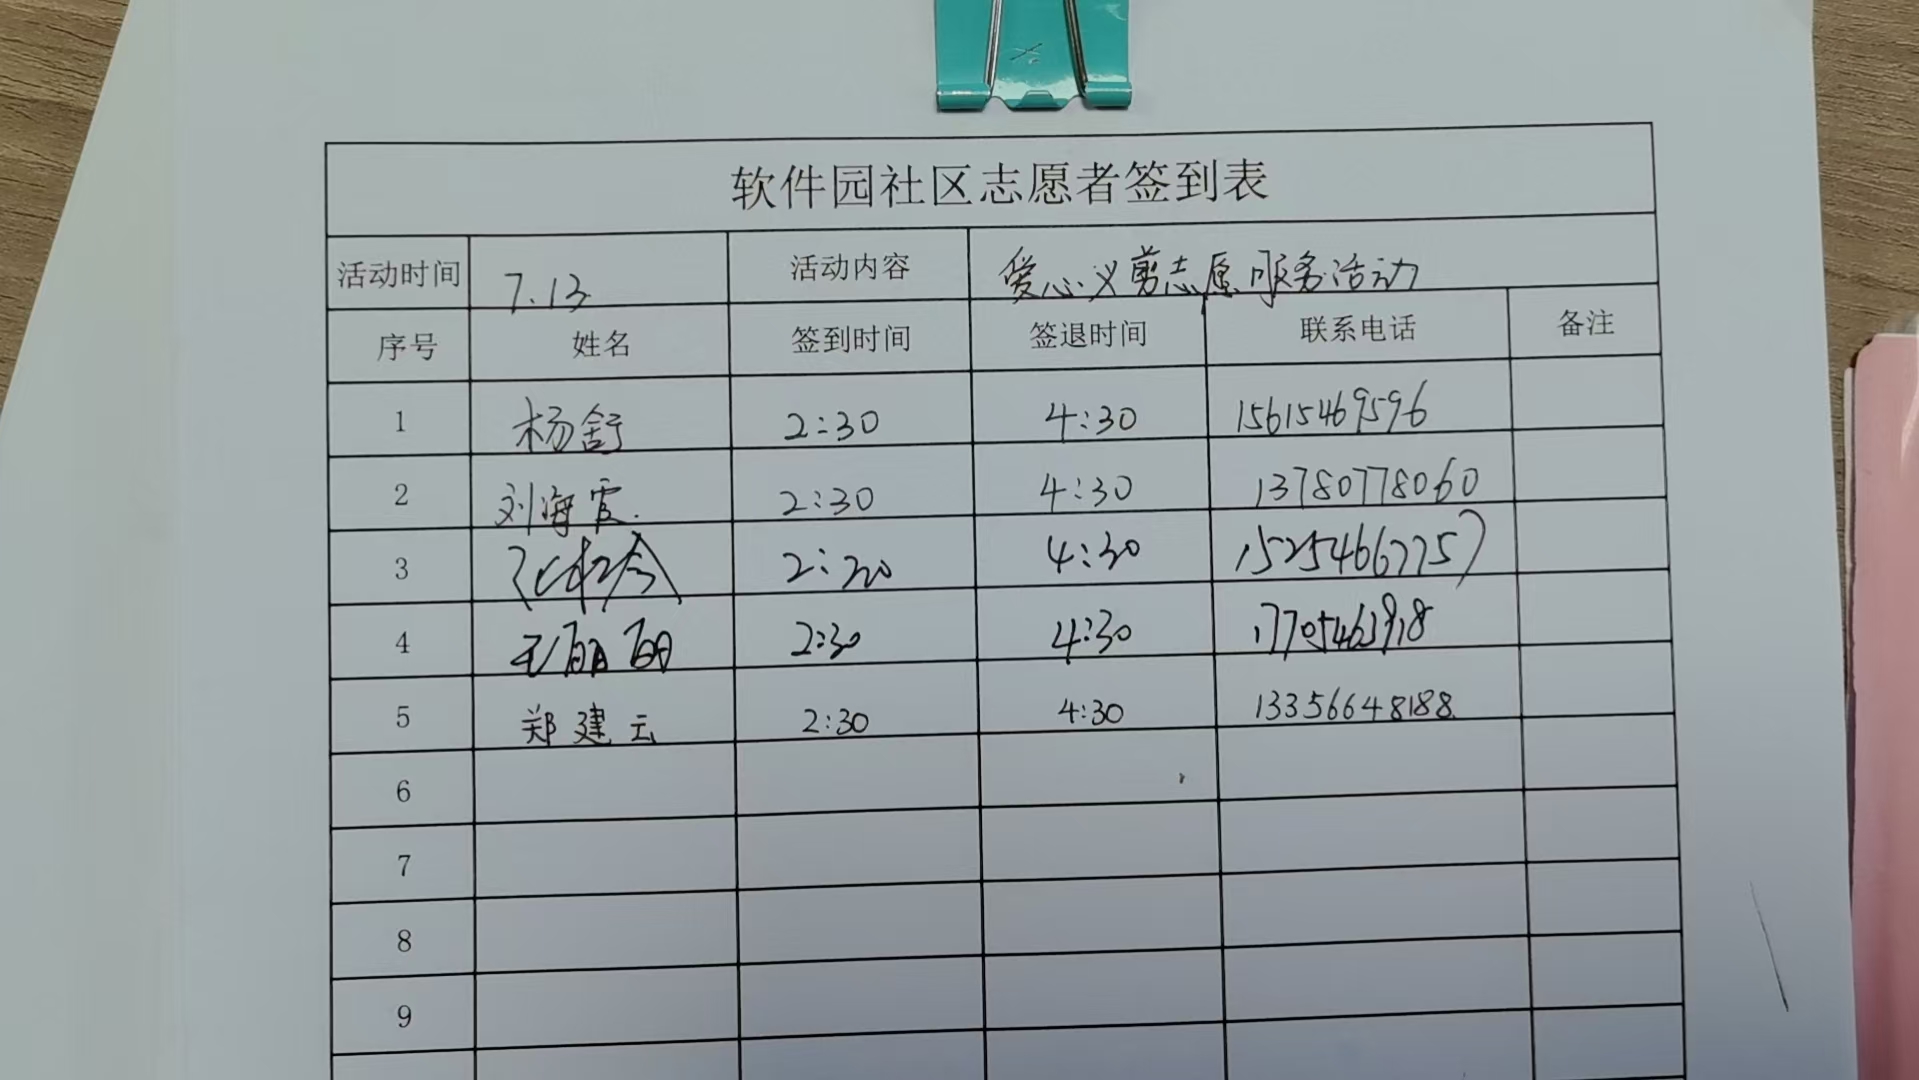 软件园社区志愿者签到表
活动时间 7.13 活动内容 爱心义剪志愿服务活动
序号 姓名 签到时间 签退时间 联系电话 备注
1 杨舒 2:30 4:30 15615469596
2 刘海霞 2:30 4:30 13780778060
3 2:30 4:30 15254667757
4 王丽丽 2:30 4:30
5 郑建云 2:30 4:30 13356648188
6
7
8
9